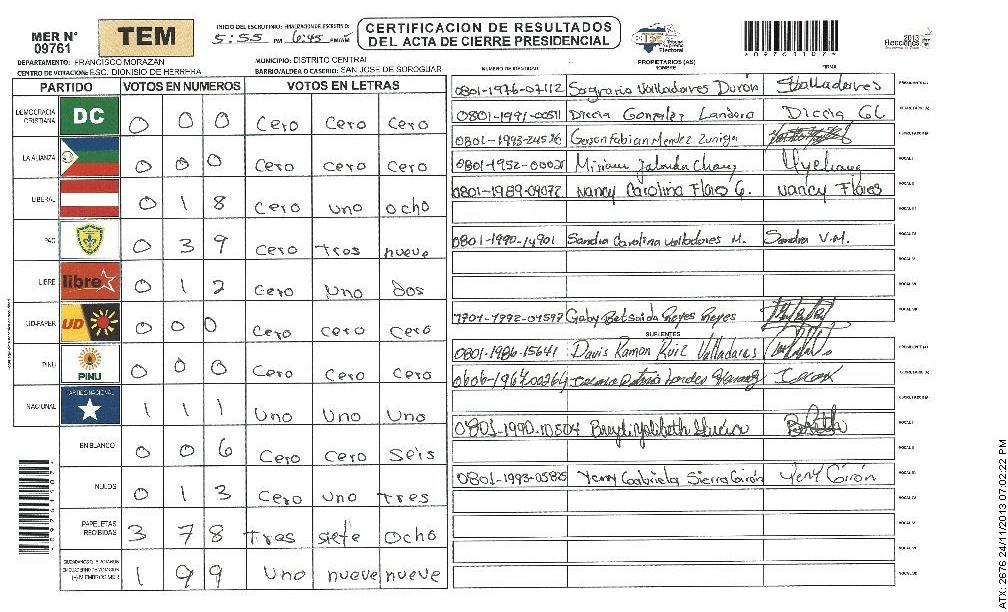 MER N° 09761
TEM
INICIO DEL ESCRUTINIO: FINALIZACION DE ESCRUTINIO:
5:55 PM 6:45 PM/AM
CERTIFICACION DE RESULTADOS
DEL ACTA DE CIERRE PRESIDENCIAL
TSE
2013
Elecciones
*09761107*
DEPARTAMENTO: FRANCISCO MORAZAN
MUNICIPIO: DISTRITO CENTRAL
CENTRO DE VOTACION: ESC. DIONISIO DE HERRERA
BARRIO/ALDEA O CASERIO: SAN JOSE DE SOROGUAR
NUMERO DE IDENTIDAD PROPIETARIOS (AS) NOMBRE FIRMA
PARTIDO VOTOS EN NUMEROS VOTOS EN LETRAS
DEMOCRACIA CRISTIANA DC 0 0 0 Cero Cero Cero
LA ALIANZA 0 0 0 Cero Cero Cero
LIBERAL 0 1 8 Cero uno ocho
PAC 0 3 9 Cero tres nueve
LIBRE libre 0 1 2 Cero Uno dos
UD-FAPER UD 0 0 0 Cero cero Cero
PINU PINU 0 0 0 Cero Cero Cero
NACIONAL PARTIDO NACIONAL 1 1 1 Uno Uno Uno
EN BLANCO 0 0 6 Cero Cero Seis
NULOS 0 1 3 Cero uno tres
PAPELETAS RECIBIDAS 3 7 8 tres siete Ocho
1 9 9 Uno nueve nueve
0801-1976-07112 Sagrario Valladares Duron SValladares
0801-1991-00511 Diccia Gonzalez Landero Diccia GL
0801-1993-24576 Gerson Fabian Mendez Zuniga
0801-1952-00021 Miriam
0801-1989-09072 Nancy Carolina Flores G. Nancy Flores
0801-1990-14901 Sandra Carolina Valladares M. Sandra V.M.
Gaby Betsaida Reyes Reyes
SUPLENTES
0801-1986-15641 Davis Ramon Ruiz Valladares
0801-1990-10504
0801-1993-05825 Yeny Gabriela Sierra Girón Yeny Girón
*09761907*
ATX 2676 24/11/2013 07:02:22 PM